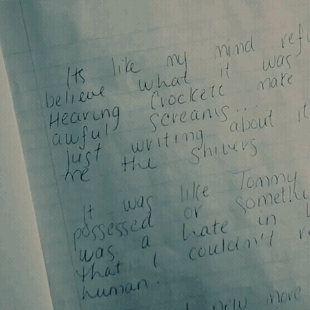 Its like my mind refu
believe what it was
Hearing Crockett make
awful screams...
just writing about it
me the shivers
It was like Tommy
possessed or somethi
was a hate in h
that I couldn't r
human.
more